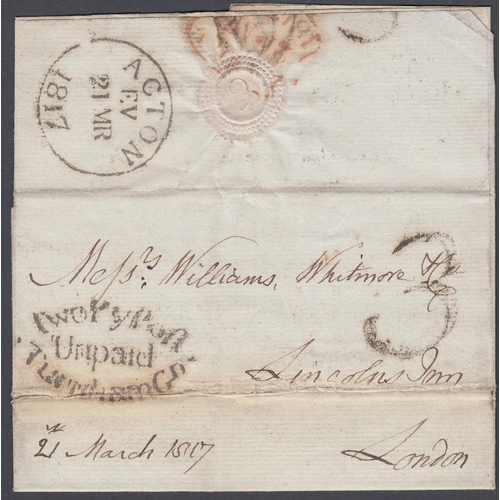 ACTON
EV
21 MR
1817
Messrs Williams, Whitmore & Co
3
Two Py Post
Unpaid
Turnham Gn
Lincolns Inn
21st March 1817
London